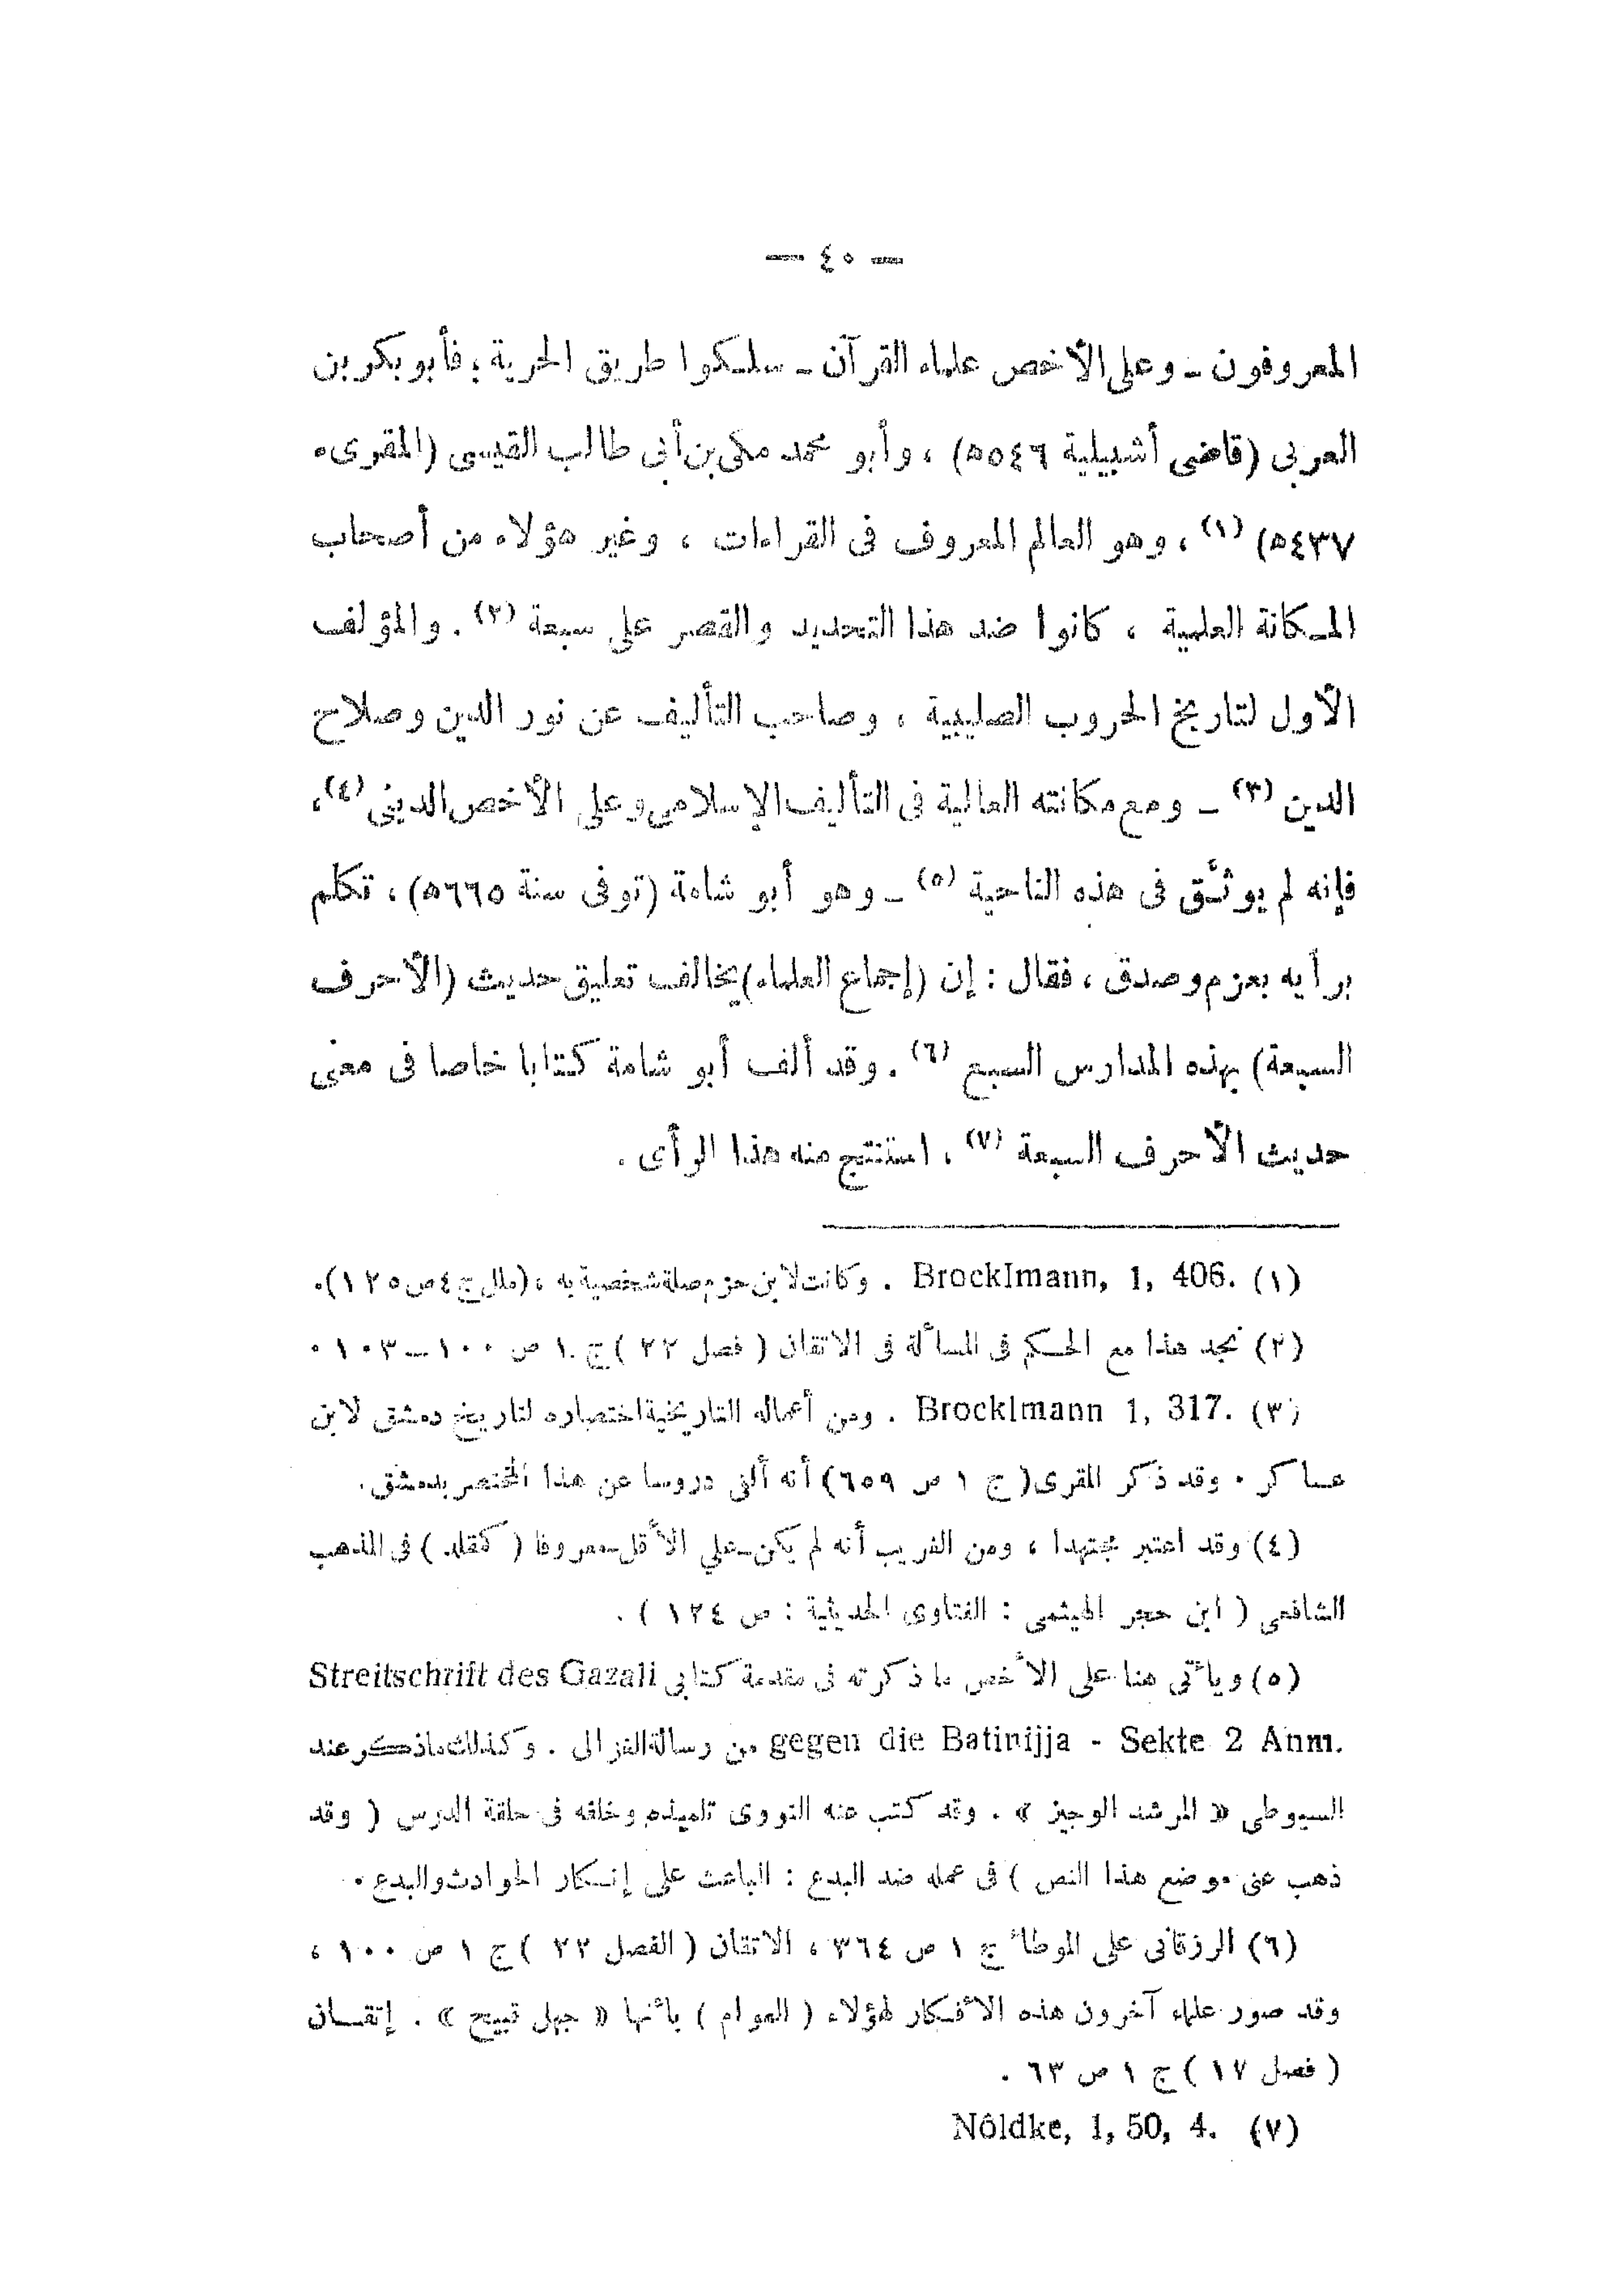 — ٤٠ —
المعروفون ـ وعلى الأخص علماء القرآن ـ سلكوا طريق الحرية ؛ فأبو بكر بن
العربى (قاضى أشبيلية ٥٤٦ه) ، وأبو محمد مكى بن أبى طالب القيسى (المقرىء
٤٣٧ه) (١) ، وهو العالم المعروف فى القراءات ، وغير هؤلاء من أصحاب
المكانة العلمية ، كانوا ضد هذا التحديد والقصر على سبعة (٢) . والمؤلف
الأول لتاريخ الحروب الصليبية ، وصاحب التأليف عن نور الدين وصلاح
الدين (٣) ـ ومع مكانته العالية فى التأليف الإسلامى وعلى الأخص الدينى (٤) ،
فإنه لم يوثَّق فى هذه الناحية (٥) ـ وهو أبو شامة (توفى سنة ٦٦٥ه) ، تكلم
برأيه بعزم وصدق ، فقال : إن (إجماع العلماء) يخالف تعليق حديث (الأحرف
السبعة) بهذه المدارس السبع (٦) . وقد ألف أبو شامة كتابا خاصا فى معنى
حديث الأحرف السبعة (٧) ، استنتج منه هذا الرأى .
(١) Brocklmann, 1, 406. . وكانت لابن حزم صلة شخصية به ، (ملل ج ٤ ص ١٢٥) .
(٢) نجد هذا مع الحكم فى المسألة فى الاتقان ( فصل ٢٢ ) ج ١ ص ١٠٠ – ١٠٣ .
(٣) Brocklmann 1, 317. . ومن أعماله التاريخية اختصاره لتاريخ دمشق لابن
عساكر . وقد ذكر المقرى ( ج ١ ص ٦٥٩) أنه ألقى دروسا عن هذا المختصر بدمشق .
(٤) وقد اعتبر مجتهدا ، ومن الغريب أنه لم يكن ـ على الأقل ـ معروفا ( كمقلد ) فى المذهب
الشافعى ( ابن حجر الهيثمى : الفتاوى الحديثية : ص ١٢٤ ) .
(٥) ويأتى هنا على الأخص ما ذكرته فى مقدمة كتابى Streitschrift des Gazali
gegen die Batinijja - Sekte 2 Anm. من رسالة الغزالى . وكذلك ما ذكر عند
السيوطى « المرشد الوجيز » . وقد كتب عنه النووى تلميذه وخلفه فى حلقة الدرس ( وقد
ذهب عنى موضع هذا النص ) فى عمله ضد البدع : الباعث على إنكار الحوادث والبدع .
(٦) الزرقانى على الموطأ ج ١ ص ٣٦٤ ، الاتقان ( الفصل ٢٢ ) ج ١ ص ١٠٠ ،
وقد صور علماء آخرون هذه الأفكار لهؤلاء ( العوام ) بأنها « جهل قبيح » . إتقان
( فصل ١٧ ) ج ١ ص ٦٣ .
(٧) Nôldke, 1, 50, 4.